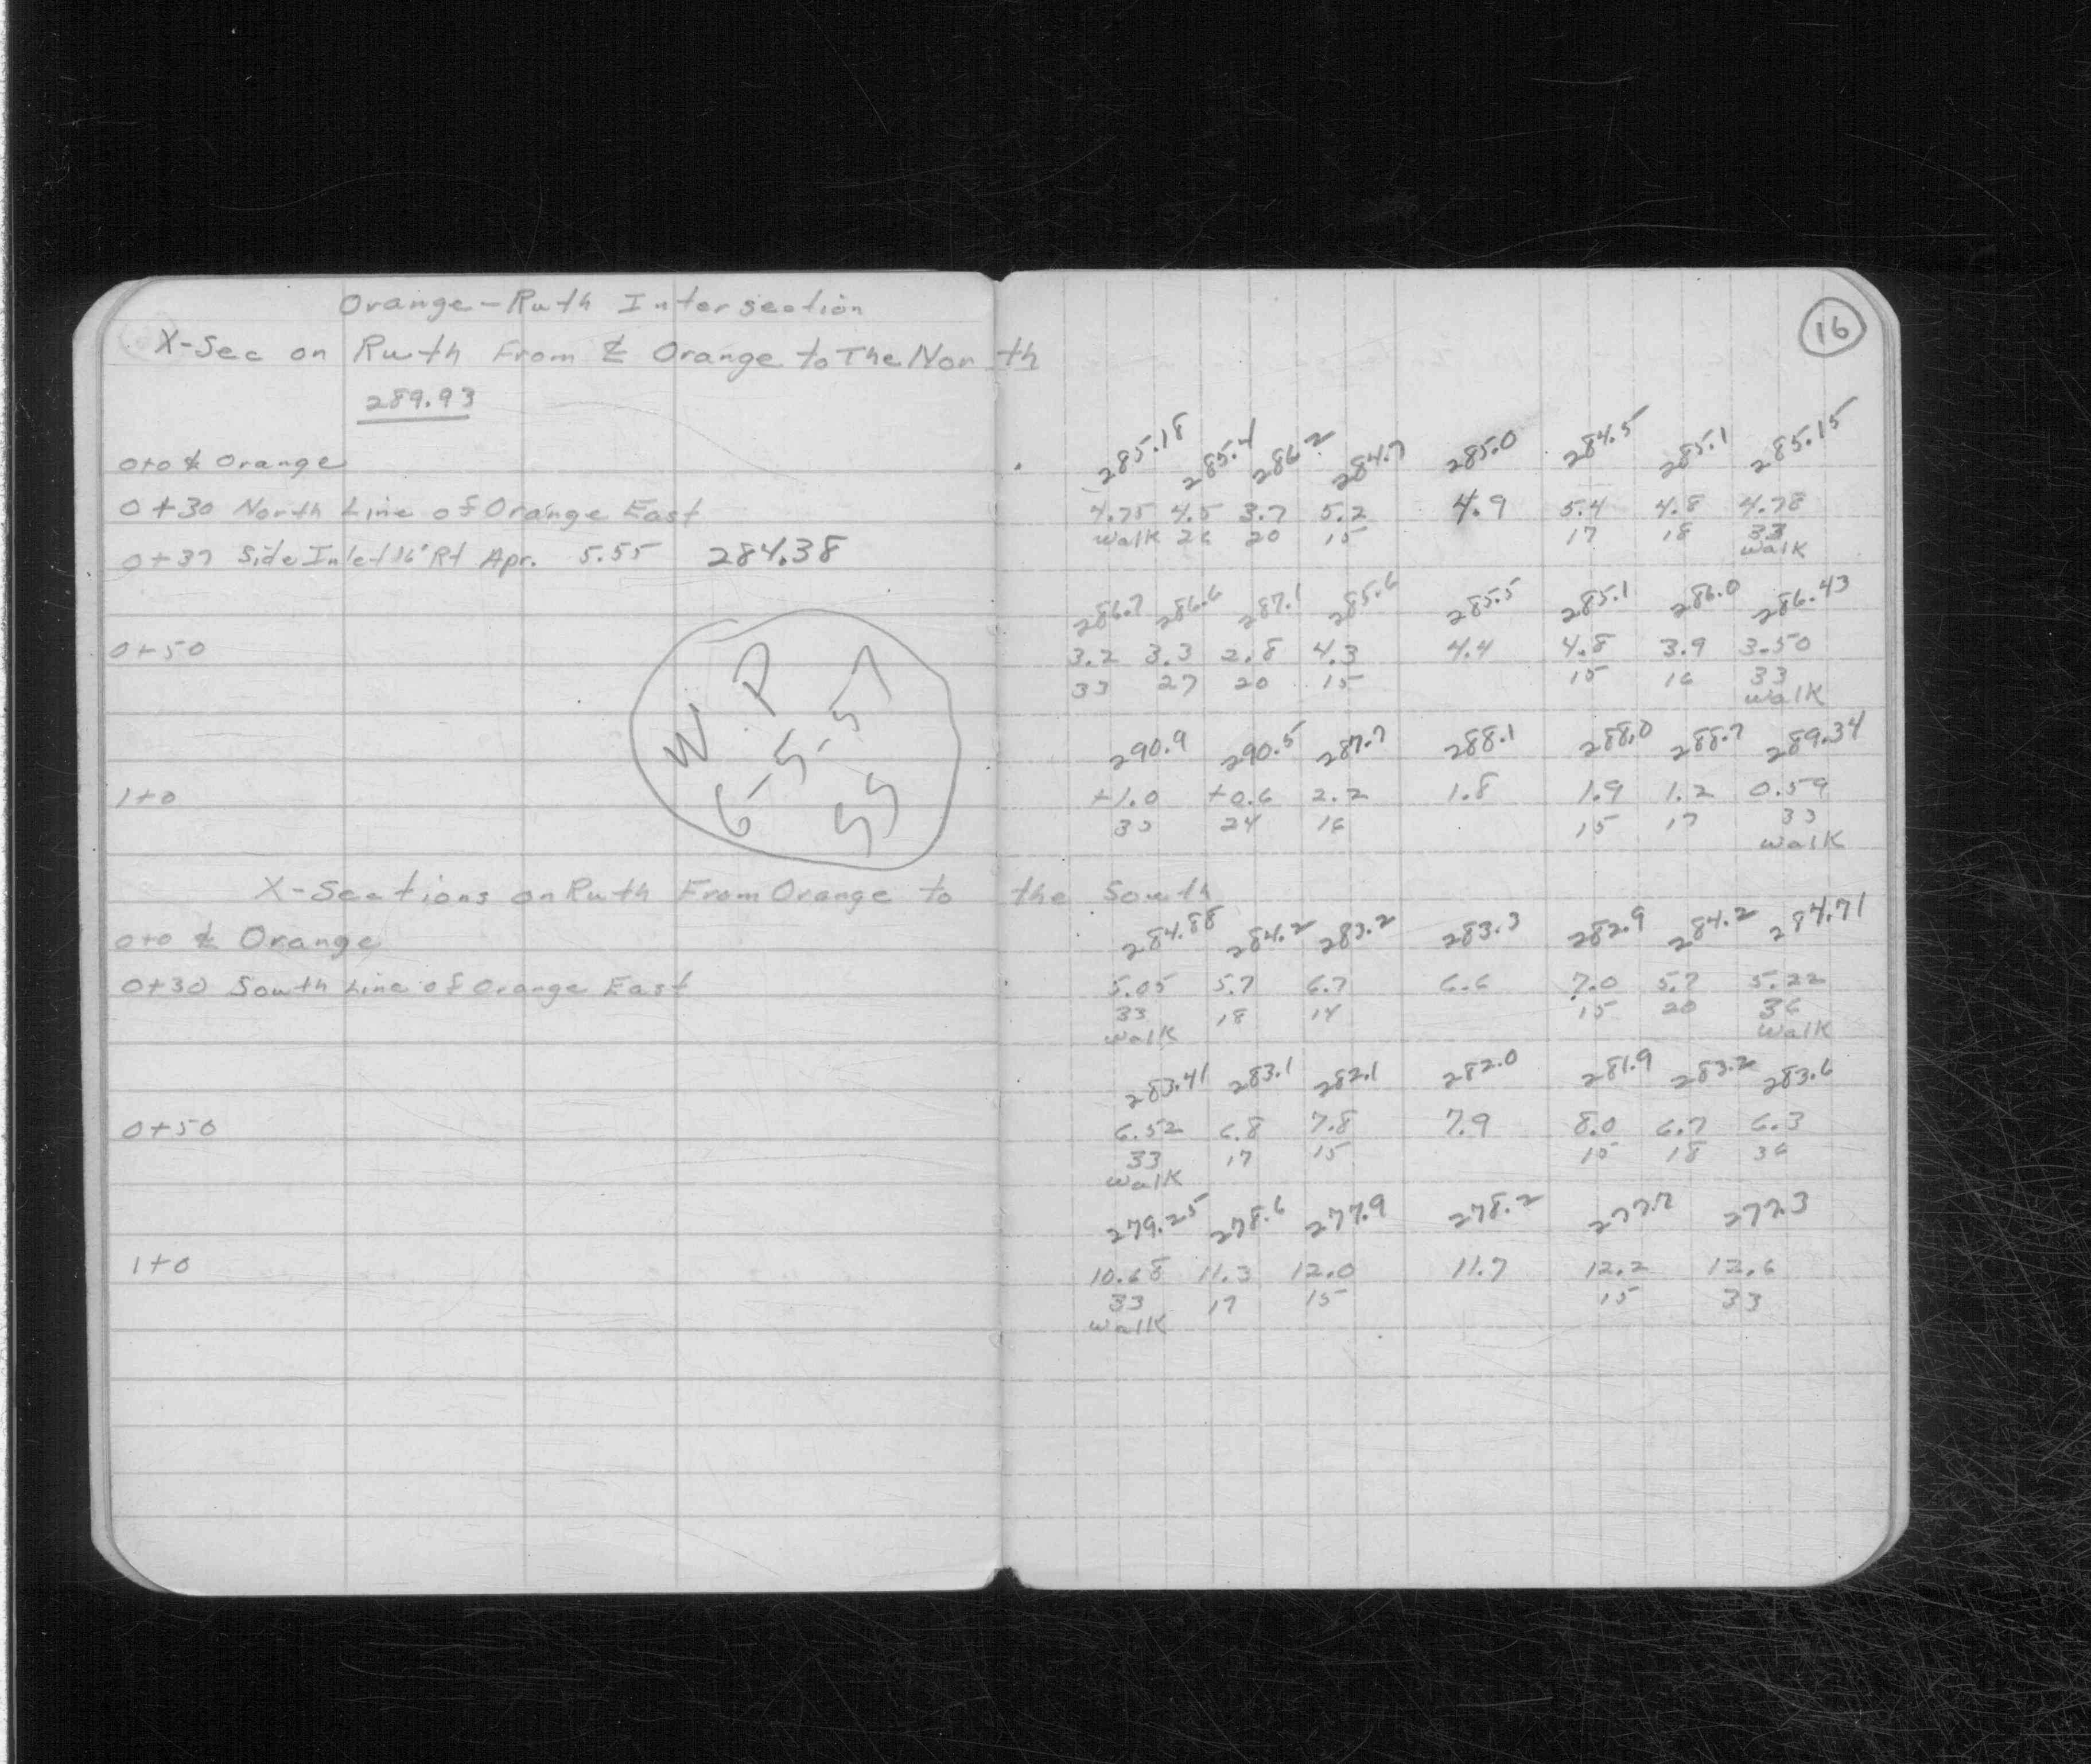 Orange-Ruth Intersection
16
X-Sec on Ruth From ℄ Orange to The North
289.93
285.18 285.4 286.2 284.7 285.0 284.5 285.1 285.15
0+0 ℄ Orange
0+30 North Line of Orange East 4.75 4.5 3.7 5.2 4.9 5.4 4.8 4.78
walk 26 20 15 17 18 33
walk
0+37 Side Inlet 16' Rt Apr. 5.55 284.38
286.7 286.6 287.1 285.6 285.5 285.1 286.0 286.43
0+50 3.2 3.3 2.8 4.3 4.4 4.8 3.9 3.50
33 27 20 15 15 16 33
walk
W.P
6-5-57
55
290.9 290.5 287.7 288.1 288.0 288.7 289.34
1+0 +1.0 +0.6 2.2 1.8 1.9 1.2 0.59
33 24 16 15 17 33
walk
X-Sections on Ruth From Orange to the South
284.88 284.2 283.2 283.3 282.9 284.2 284.71
0+0 ℄ Orange
0+30 South Line of Orange East 5.05 5.7 6.7 6.6 7.0 5.7 5.22
33 18 14 15 20 36
walk walk
283.41 283.1 282.1 282.0 281.9 283.2 283.6
0+50 6.52 6.8 7.8 7.9 8.0 6.7 6.3
33 17 15 15 18 36
walk
279.25 278.6 277.9 278.2 277.7 277.3
1+0 10.68 11.3 12.0 11.7 12.2 12.6
33 17 15 15 33
walk